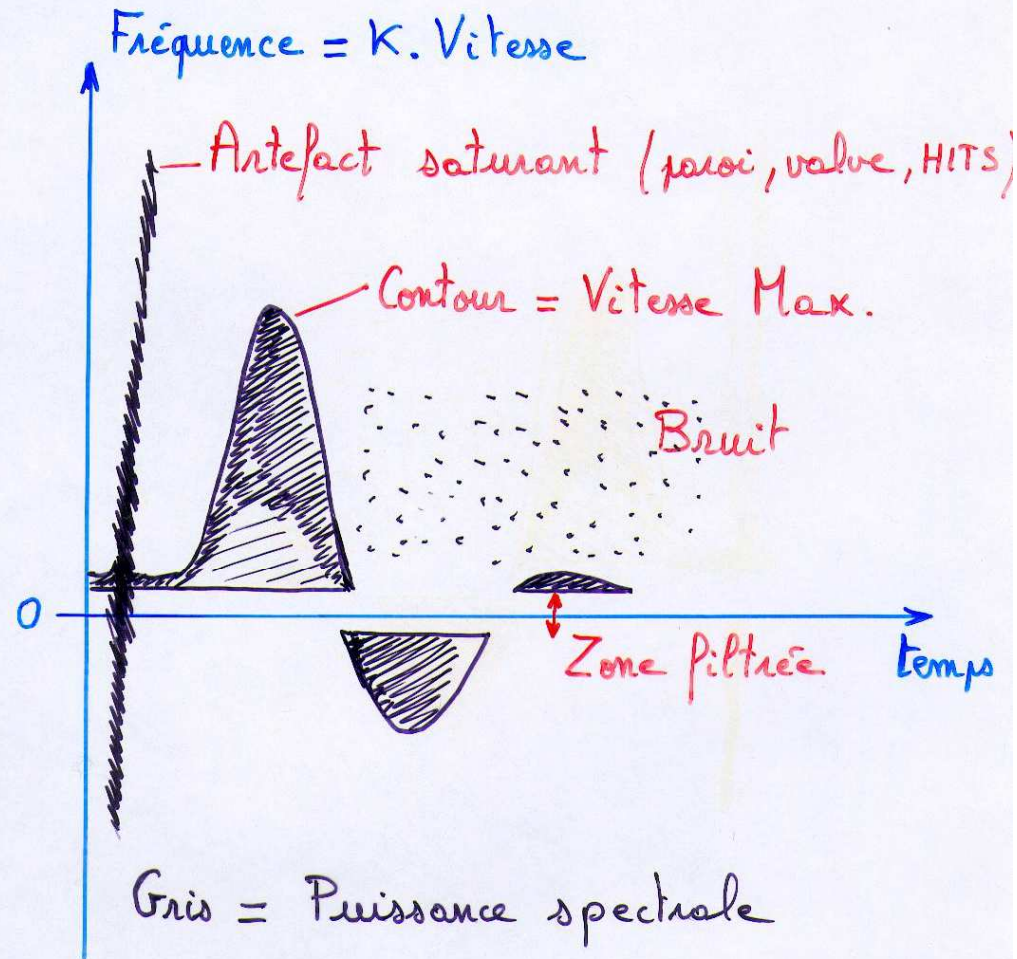 Fréquence = K. Vitesse
Artefact saturant (paroi, valve, HITS)
Contour = Vitesse Max.
Bruit
0
Zone filtrée
temps
Gris = Puissance spectrale